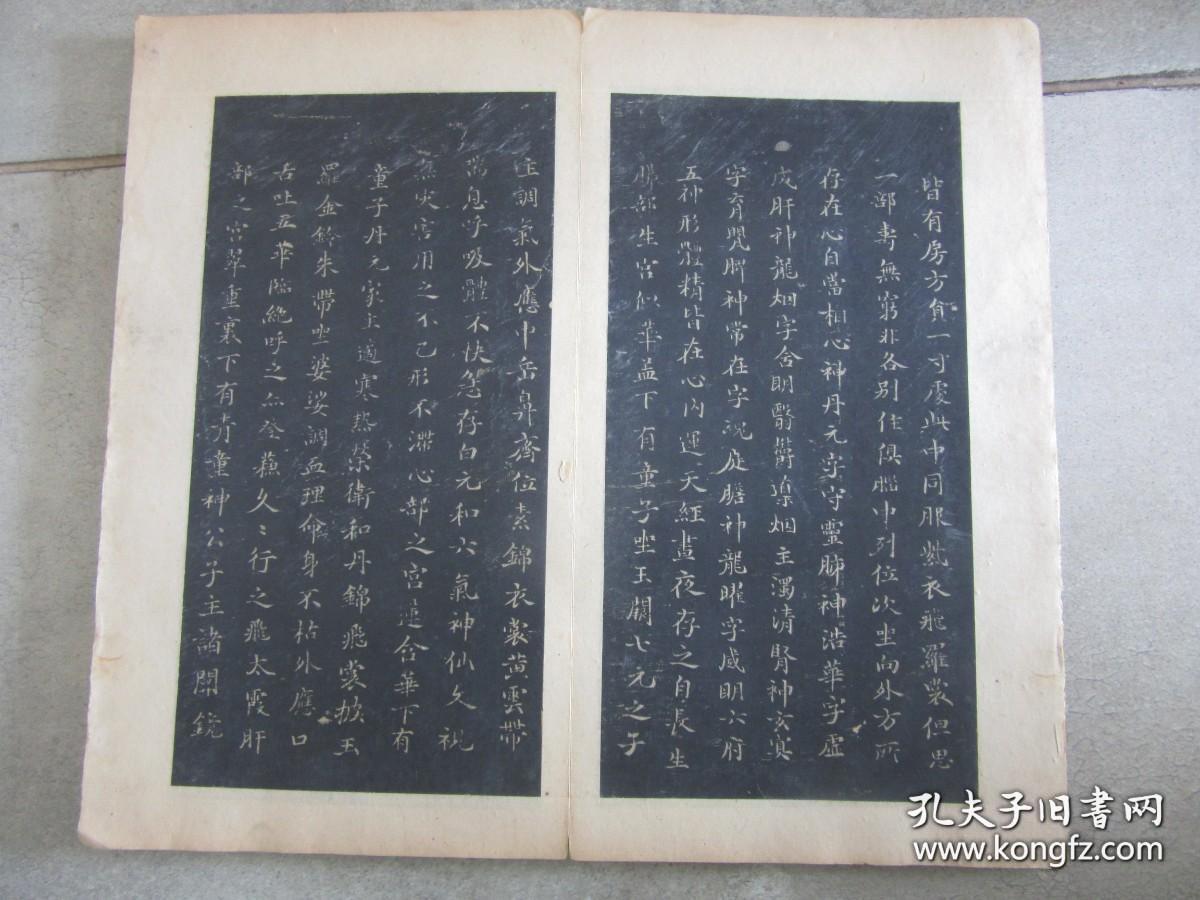 皆有房方負一寸處此中同服紫衣飛羅裳但思
一部壽無窮非各別住俱腦中列位次坐向外方所
存在心自當相心神丹元字守靈肺神浩華字虛
成肝神龍烟字含明翳鬱導烟主濁清腎神玄冥
字育嬰脾神常在字魂庭膽神龍曜字威明六府
五神形體精皆在心內運天經晝夜存之自長生
肺部生宮似華盖下有童子坐玉闕七元之子
主調氣外應中岳鼻齊位素錦衣裳黄雲帶
喘息呼吸體不快急存白元和六氣神仙久視
無災害用之不已形不滯心部之宮蓮含華下有
童子丹元家主適寒熱榮衛和丹錦飛裳披玉
羅金鈴朱帶坐婆娑調血理命身不枯外應口
舌吐五華臨絶呼之亦登蘇久々行之飛太霞肝
部之宮翠重裏下有青童神公子主諸關鏡
孔夫子旧书网
www.kongfz.com